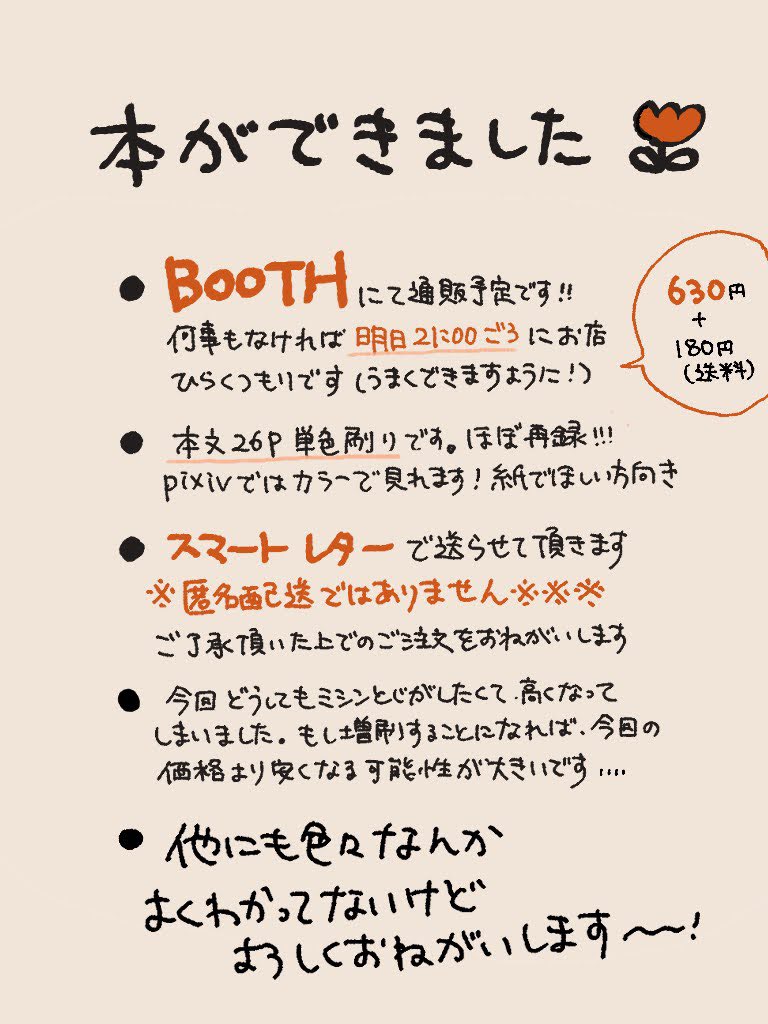 本ができました
● BOOTHにて通販予定です!!
何事もなければ 明日21:00ごろにお店
ひらくつもりです(うまくできますように!)
630円
+
180円
(送料)
● 本文26P 単色刷りです。ほぼ再録!!!
pixivではカラーで見れます!紙でほしい方向き
● スマートレターで送らせて頂きます
※匿名配送ではありません※※※
ご了承頂いた上でのご注文をおねがいします
● 今回どうしてもミシンとじがしたくて、高くなって
しまいました。もし増刷することになれば、今回の
価格より安くなる可能性が大きいです....
● 他にも色々なんか
よくわかってないけど
よろしくおねがいします〜!